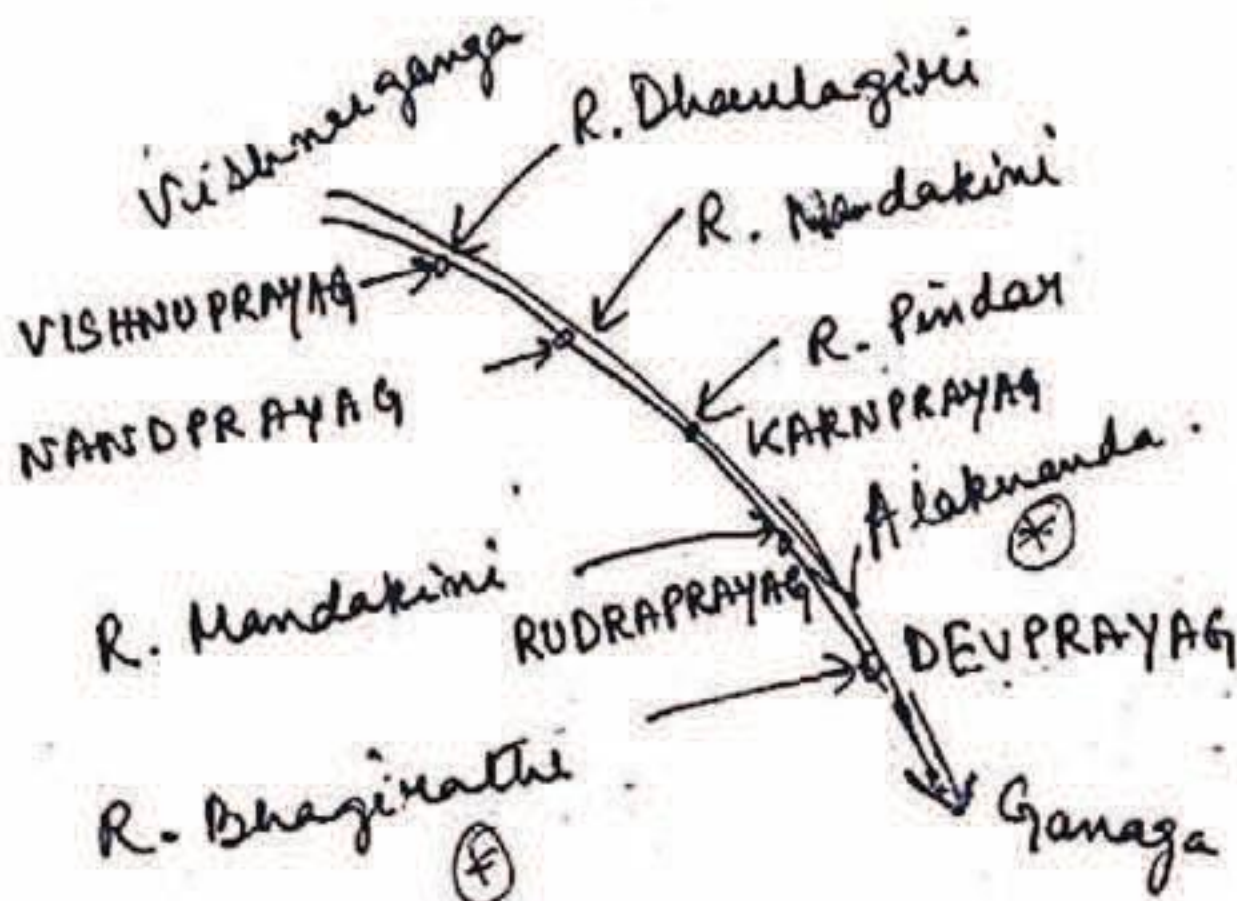 Vishnuganga
R. Dhaulagiri
R. Nandakini
VISHNUPRAYAG
R. Pindar
NANDPRAYAG
KARNPRAYAG
Alaknanda.
R. Mandakini
RUDRAPRAYAG
DEVPRAYAG
R. Bhagirathi
Ganaga